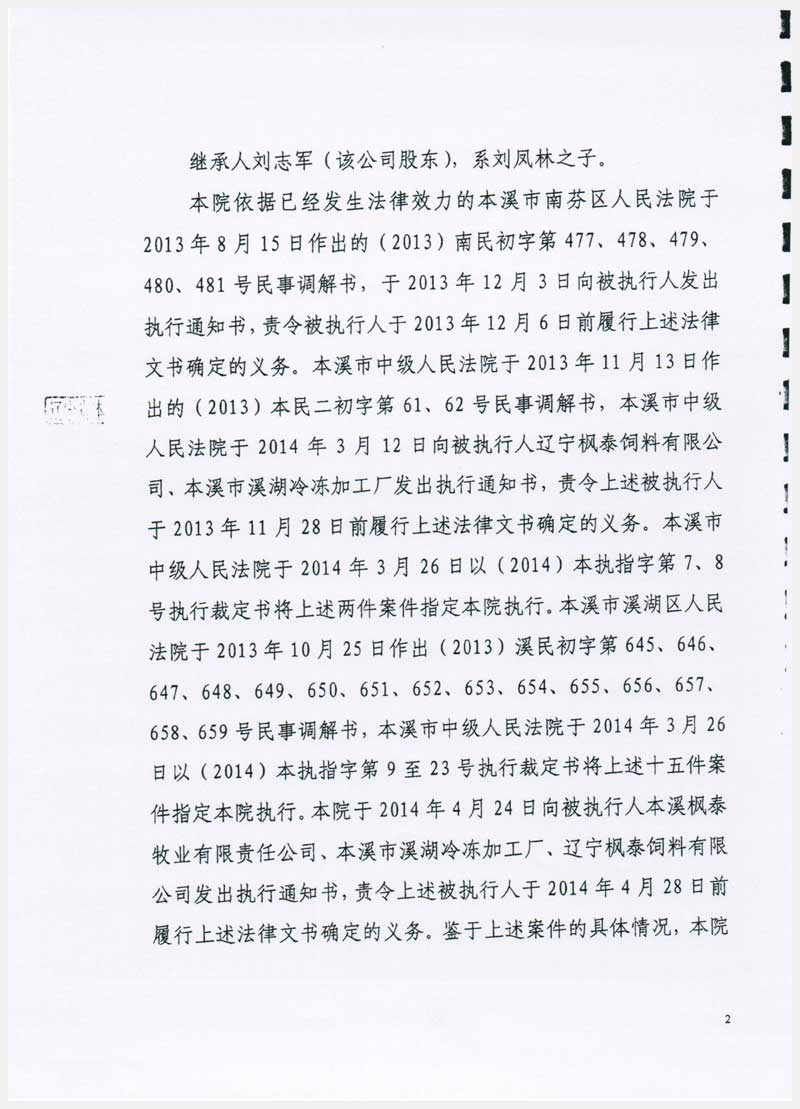 继承人刘志军（该公司股东），系刘凤林之子。
本院依据已经发生法律效力的本溪市南芬区人民法院于
2013年8月15日作出的（2013）南民初字第477、478、479、
480、481号民事调解书，于2013年12月3日向被执行人发出
执行通知书，责令被执行人于2013年12月6日前履行上述法律
文书确定的义务。本溪市中级人民法院于2013年11月13日作
出的（2013）本民二初字第61、62号民事调解书，本溪市中级
人民法院于2014年3月12日向被执行人辽宁枫泰饲料有限公
司、本溪市溪湖冷冻加工厂发出执行通知书，责令上述被执行人
于2013年11月28日前履行上述法律文书确定的义务。本溪市
中级人民法院于2014年3月26日以（2014）本执指字第7、8
号执行裁定书将上述两件案件指定本院执行。本溪市溪湖区人民
法院于2013年10月25日作出（2013）溪民初字第645、646、
647、648、649、650、651、652、653、654、655、656、657、
658、659号民事调解书，本溪市中级人民法院于2014年3月26
日以（2014）本执指字第9至23号执行裁定书将上述十五件案
件指定本院执行。本院于2014年4月24日向被执行人本溪枫泰
牧业有限责任公司、本溪市溪湖冷冻加工厂、辽宁枫泰饲料有限
公司发出执行通知书，责令上述被执行人于2014年4月28日前
履行上述法律文书确定的义务。鉴于上述案件的具体情况，本院
2